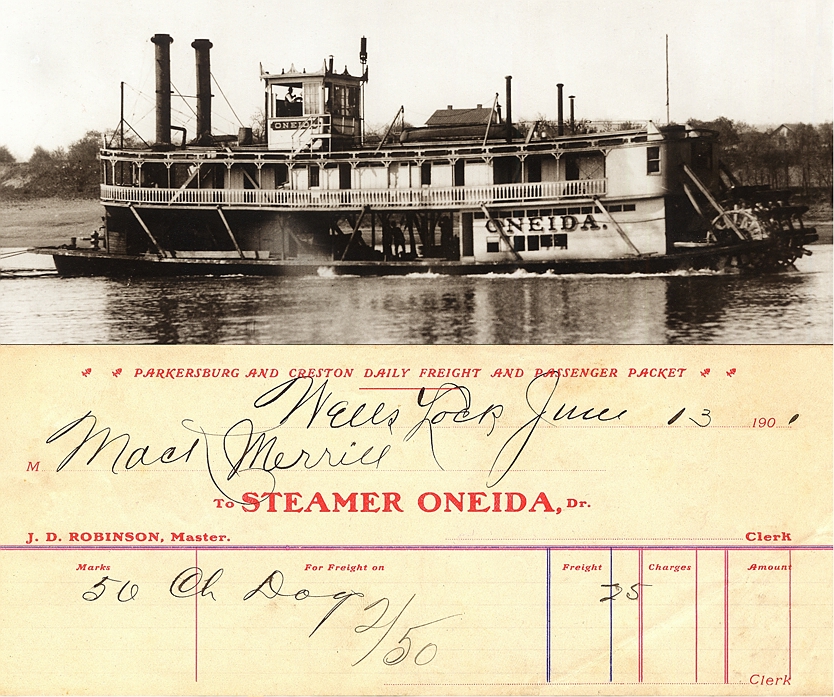 ONEIDA
ONEIDA.
PARKERSBURG AND CRESTON DAILY FREIGHT AND PASSENGER PACKET
Wells Lock June 13 1901
M Mack Merrill
To STEAMER ONEIDA, Dr.
J. D. ROBINSON, Master. Clerk
Marks For Freight on Freight Charges Amount
50 Ch Dog 25
2/50
Clerk